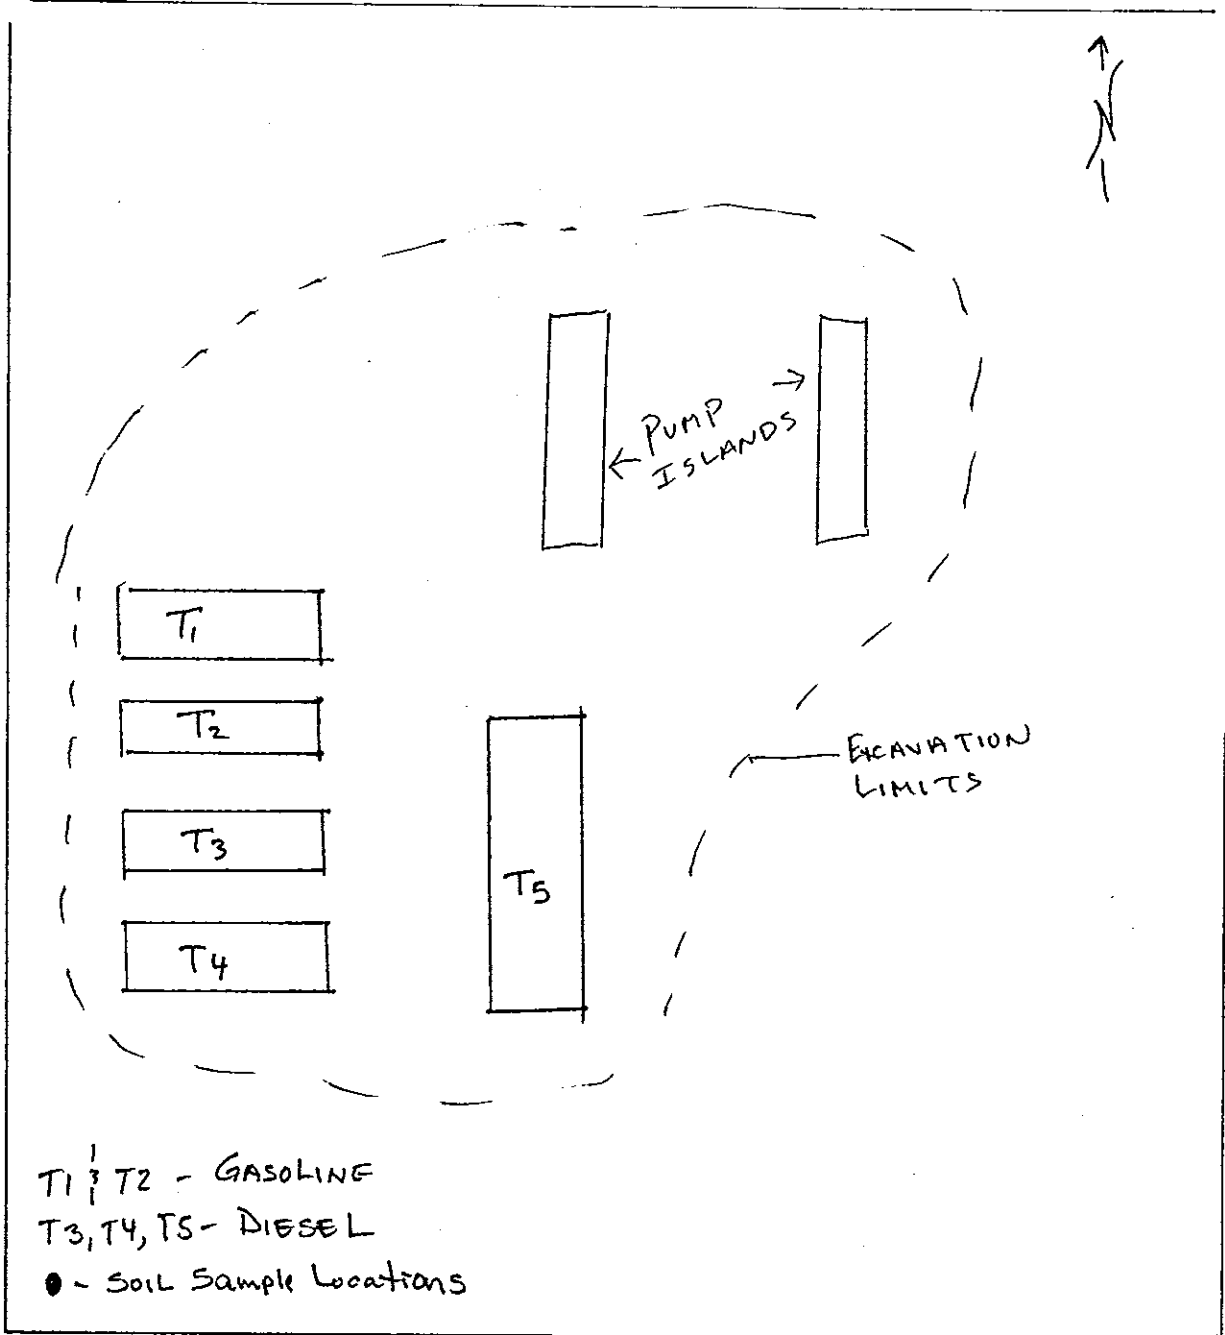 N
PUMP
ISLANDS
T1
T2
T3
T4
T5
EXCAVATION
LIMITS
T1 & T2 - GASOLINE
T3, T4, T5 - DIESEL
● - SOIL Sample Locations